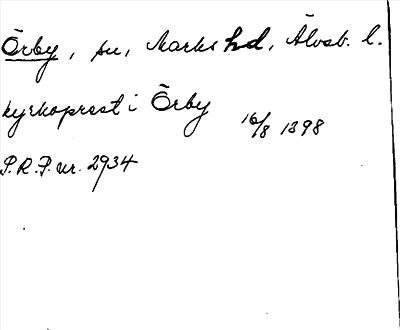 Örby, sn, Marks hd, Älvsb. l.
kyrkoprest i Örby
16/8 1398
P.R.P. nr. 2934